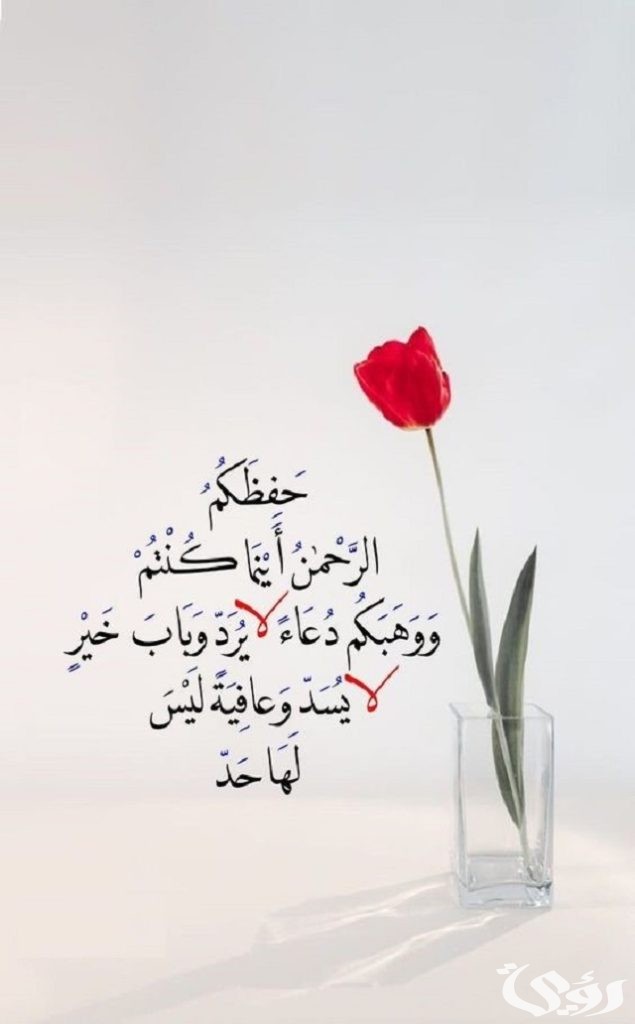 حَفِظَكُمُ
الرَّحْمٰنُ أَيْنَمَا كُنْتُمْ
وَوَهَبَكُم دُعَاءً لا يُرَدّ وَبَابَ خَيْرٍ
لا يُسَدّ وَعافِيَةً لَيْسَ
لَهَا حَدّ
رؤية